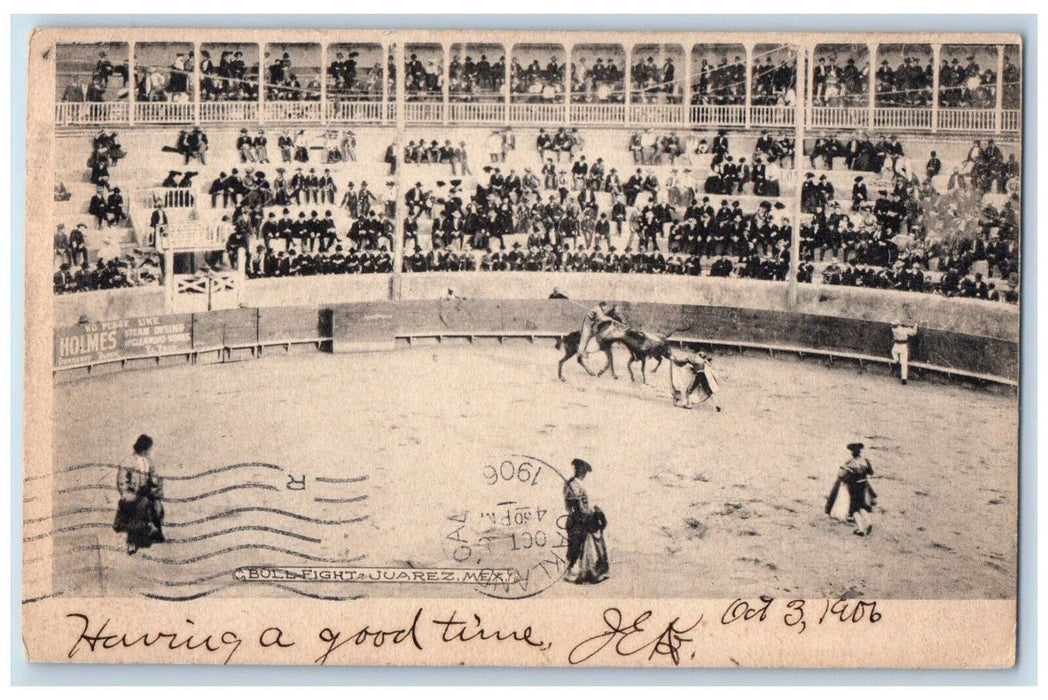 NO PLACE LIKE
HOLMES
STEAM DYEING
& CLEANING
R
OAKLAND, CAL.
OCT
4 30 PM
1906
BULL FIGHT, JUAREZ, MEX.
Having a good time, JEH. Oct 3, 1906